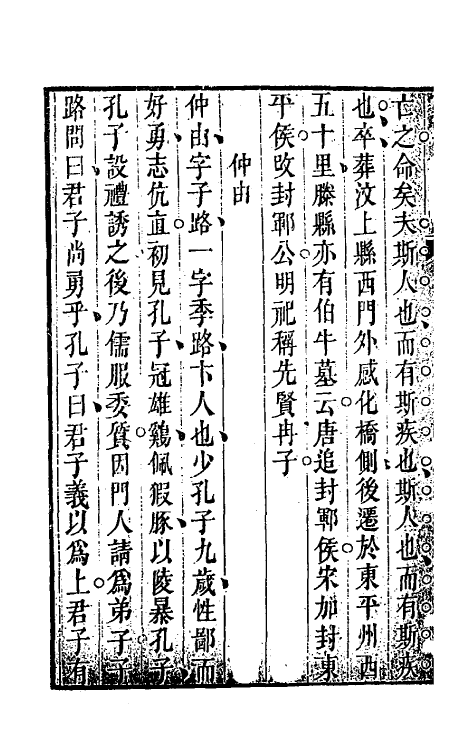 亡之命矣夫斯人也而有斯疾也斯人也而有斯疾
也卒葬汶上縣西門外感化橋側後遷於東平州西
五十里滕縣亦有伯牛墓云唐追封鄆侯宋加封東
平侯改封鄆公明祀稱先賢冉子
仲由
仲由字子路一字季路卞人也少孔子九歲性鄙而
好勇志伉直初見孔子冠雄鷄佩猳豚以陵暴孔子
孔子設禮誘之後乃儒服委質因門人請爲弟子子
路問曰君子尚勇乎孔子曰君子義以爲上君子有